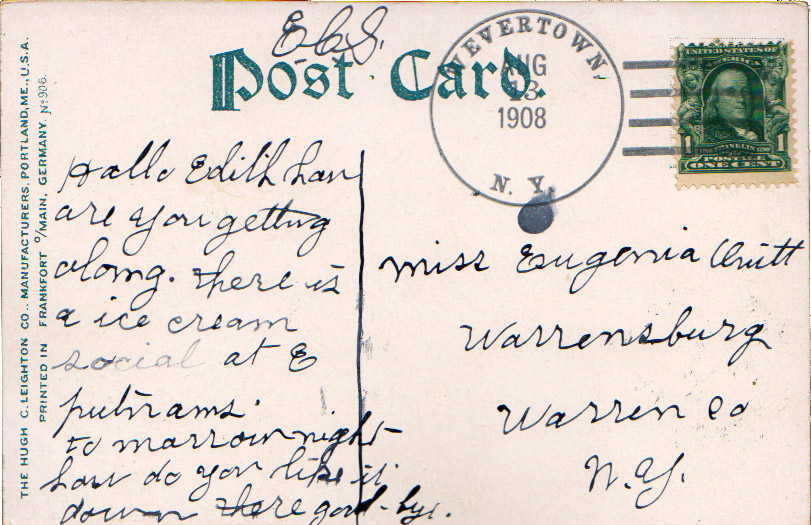 E.C.S.
Post Card.
WEVERTOWN,
AUG
13
1908
N. Y.
UNITED STATES OF
AMERICA
1 1
FRANKLIN
POSTAGE
ONE CENT
THE HUGH C. LEIGHTON CO., MANUFACTURERS, PORTLAND, ME., U.S.A.
PRINTED IN FRANKFORT o/MAIN, GERMANY. No 906.
Hallo Edith how
are you getting
along. there is
a ice cream
social at E
putnams.
to marrow night
how do you like it
down there good-bye.
Miss Eugenia
Warrensburg
Warren Co
N.Y.